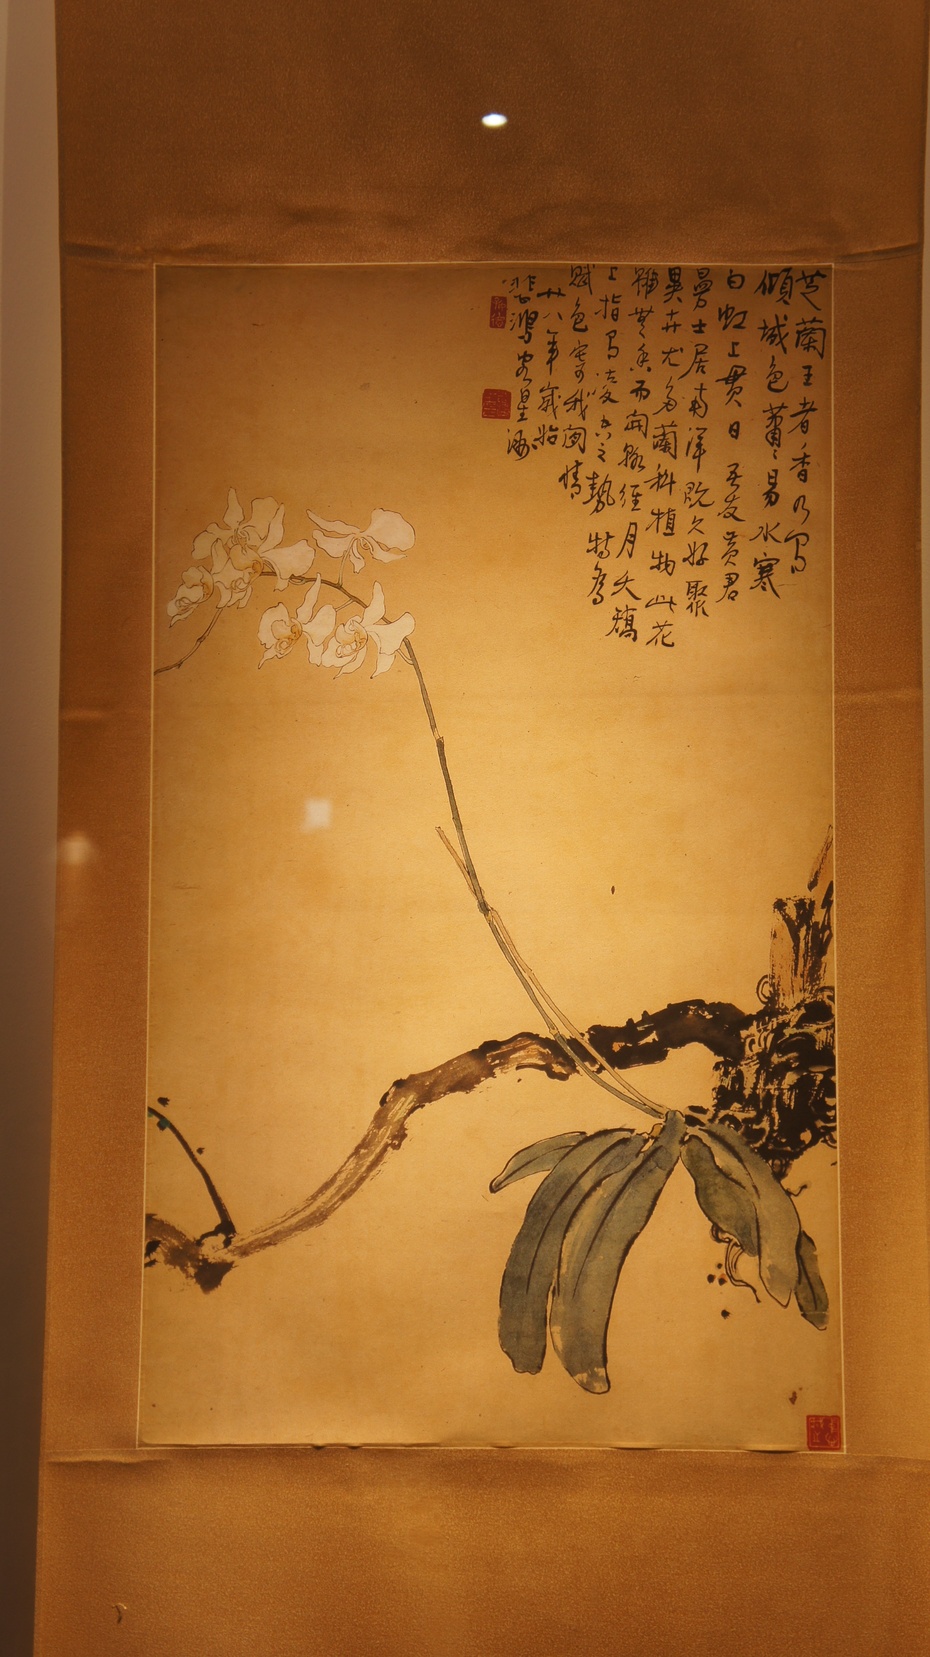 芝蘭王者香乃寫
傾城色蕭〻易水寒
白虹上貫日吾友黃君
曼士居南洋既久好聚
異卉尤多蘭科植物此花
雖無香而開輒經月夭矯
上指有凌雲之勢特為
賦色寄我閒情
廿八年歲始
悲鴻客星洲